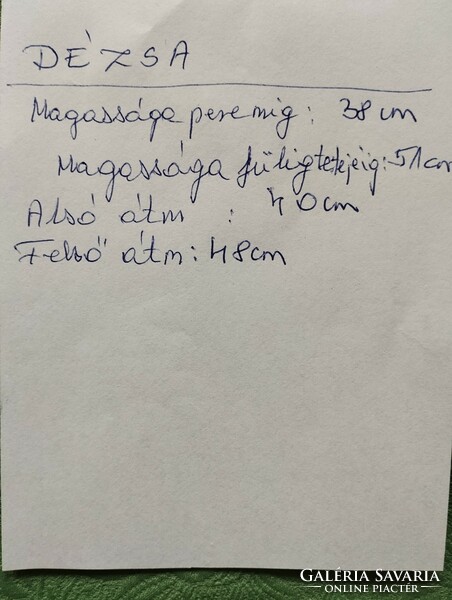 DÉZSA
Magassága peremig: 38 cm
Magassága fülig tetejéig: 51 cm
Alsó átm : 40 cm
Felső átm: 48 cm
GALÉRIA SAVARIA
ONLINE PIACTÉR